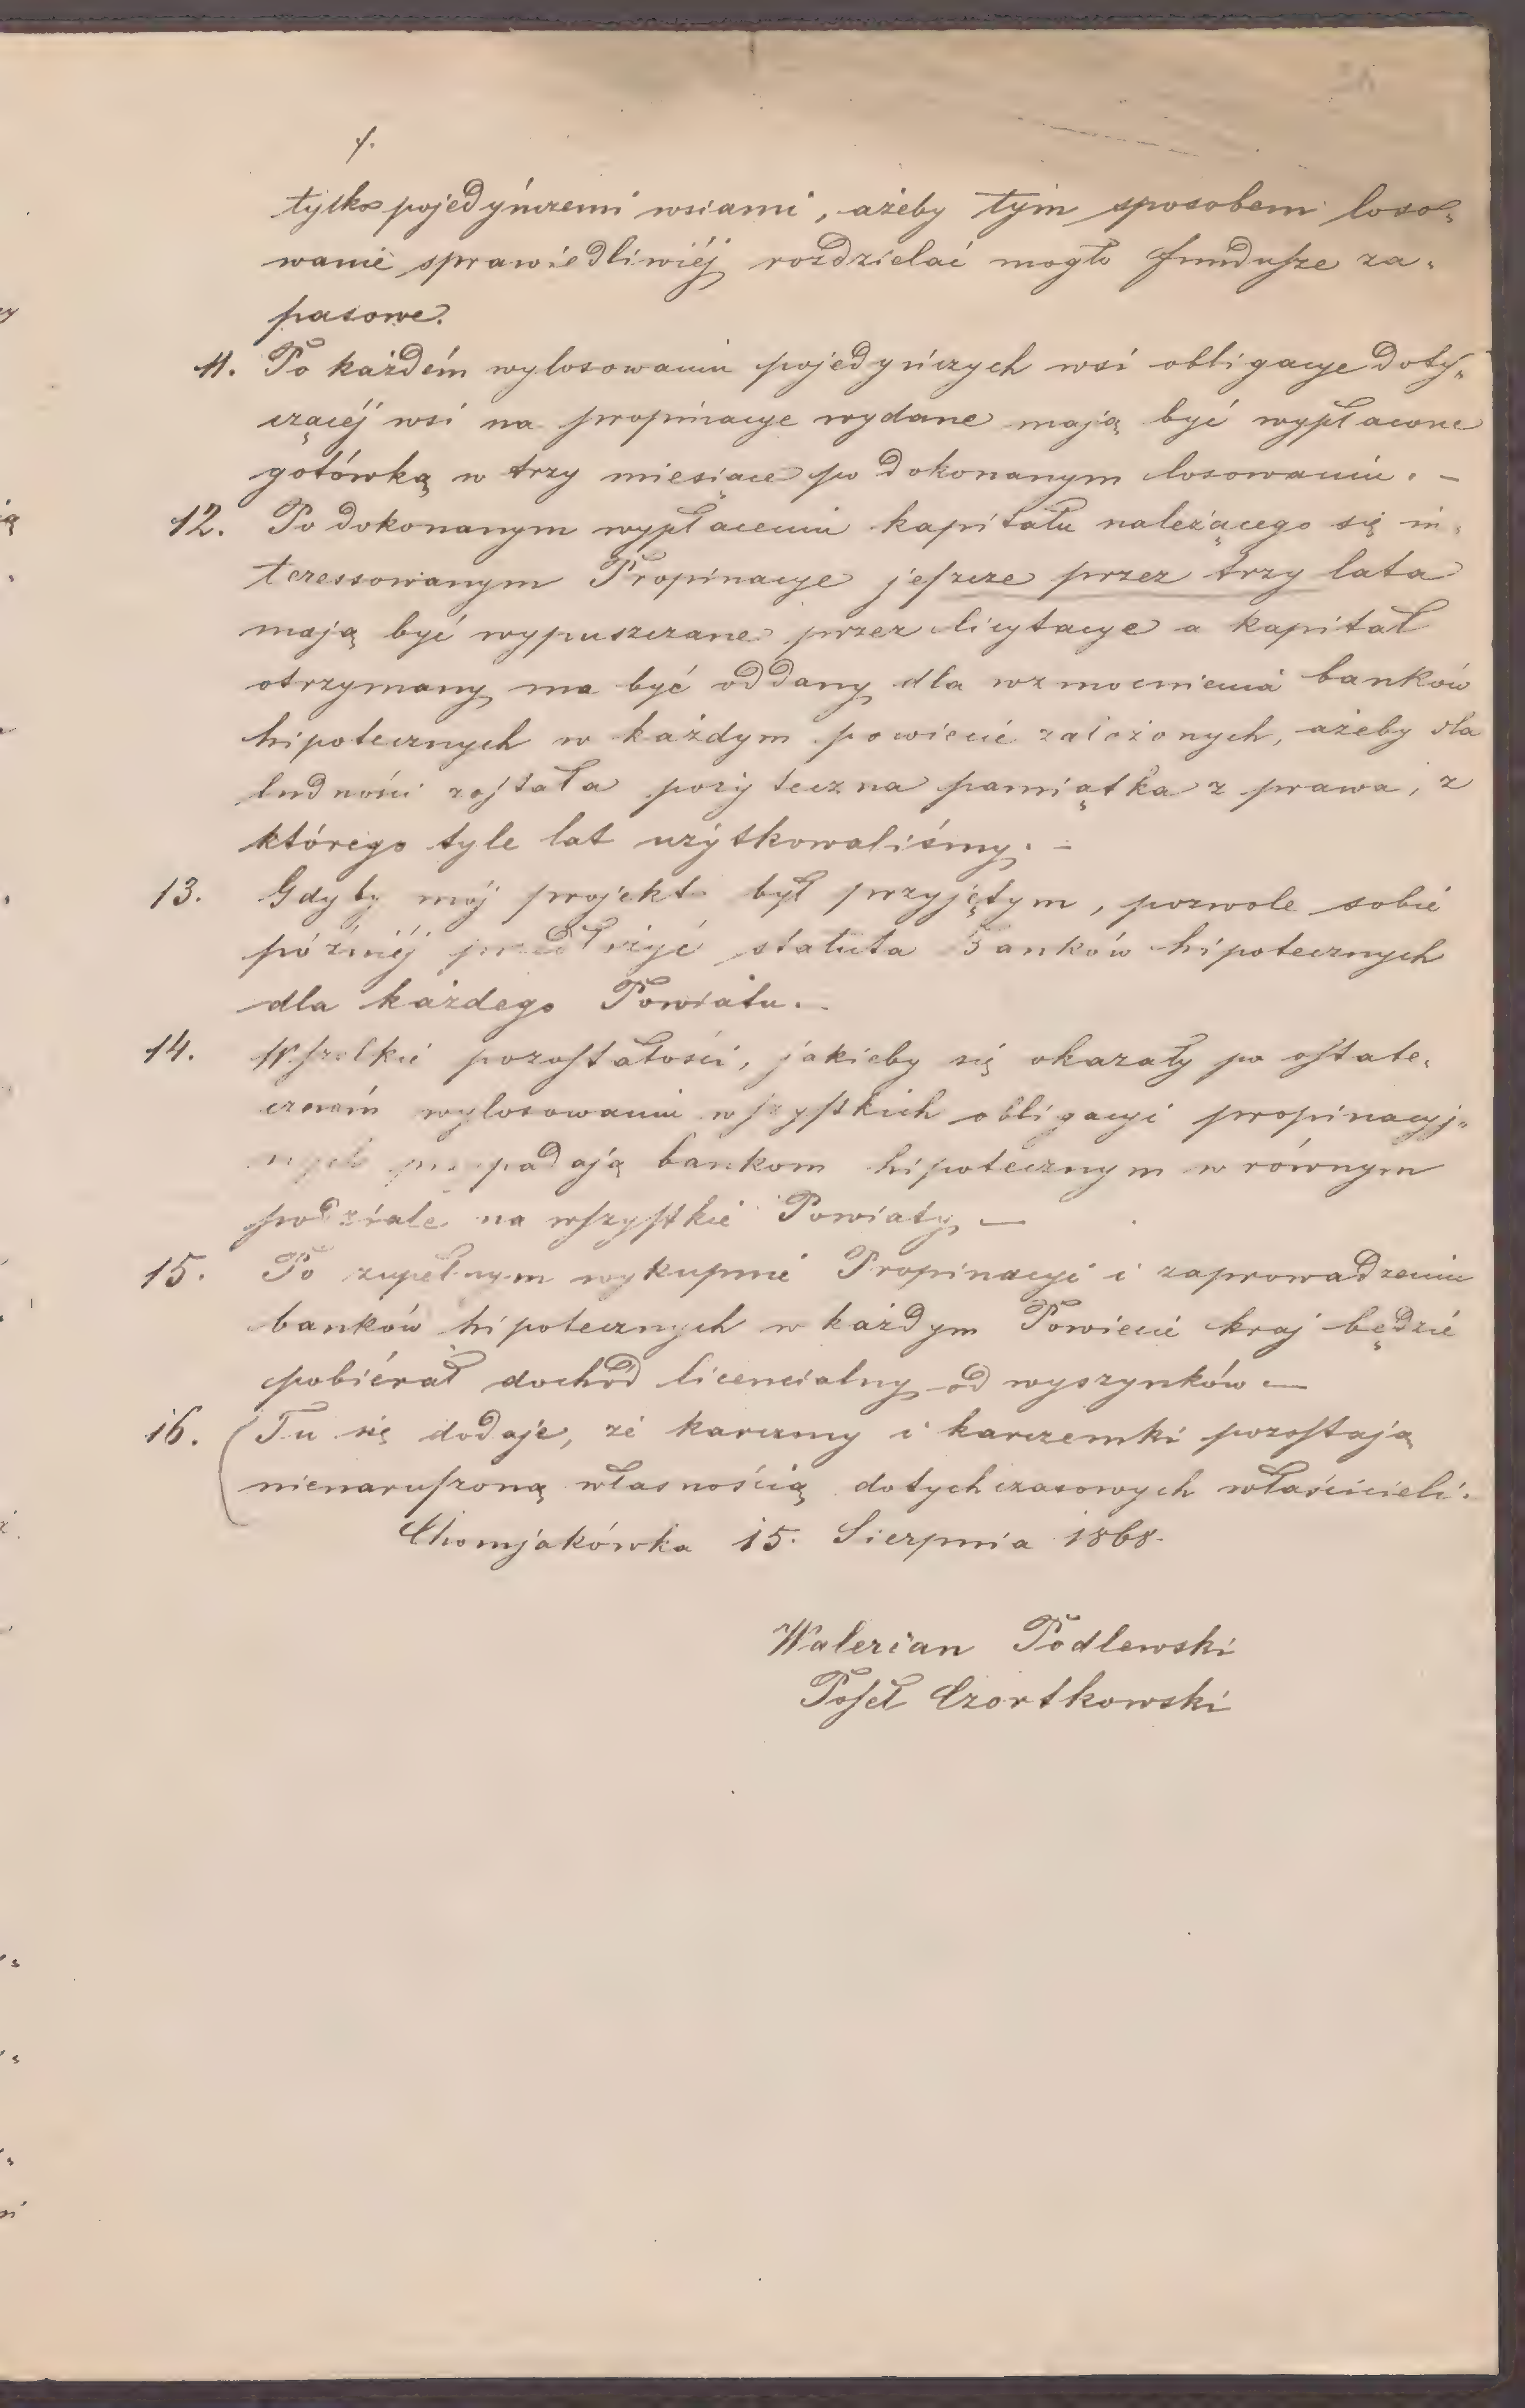 tylko pojedyńczemi wsiami, ażeby tym sposobem loso-
wanie sprawiedliwiéj rozdzielać mogło fundusze za-
pasowe.
11. Po każdém wylosowaniu pojedyńczych wsi obligacye doty-
czącéj wsi na propinacye wydane mają być wypłacone
gotówką w trzy miesiące po dokonanym losowaniu. –
12. Po dokonanym wypłaceniu kapitału należącego się in-
teressowanym Propinacye jeszcze przez trzy lata
mają być wypuszczane przez licytacye a kapitał
otrzymany ma być oddany dla wzmocnienia banków
hipotecznych w każdym powiecie założonych, ażeby dla
ludności została pożyteczna pamiątka z prawa, z
którego tyle lat użytkowaliśmy. –
13. Gdyby mój projekt był przyjętym, pozwole sobie
późniéj przedłożyć statuta banków hipotecznych
dla każdego Powiatu. –
14. Wszelkie pozostałości, jakieby się okazały po ostate-
cznem wylosowaniu wszystkich obligacyi propinacyj-
nych przypadają bankom hipotecznym w równym
podziale na wszystkie Powiaty. –
15. Po zupełnym wykupnie Propinacyi i zaprowadzeniu
banków hipotecznych w każdym Powiecie kraj będzie
pobiérał dochód licencialny od wyszynków –
16. (Tu się dodaje, że karczmy i karczemki pozostają
nienaruszoną własnością dotychczasowych właścicieli.
Chomjakówka 15. Sierpnia 1868.
Walerian Podlewski
Poseł Czortkowski